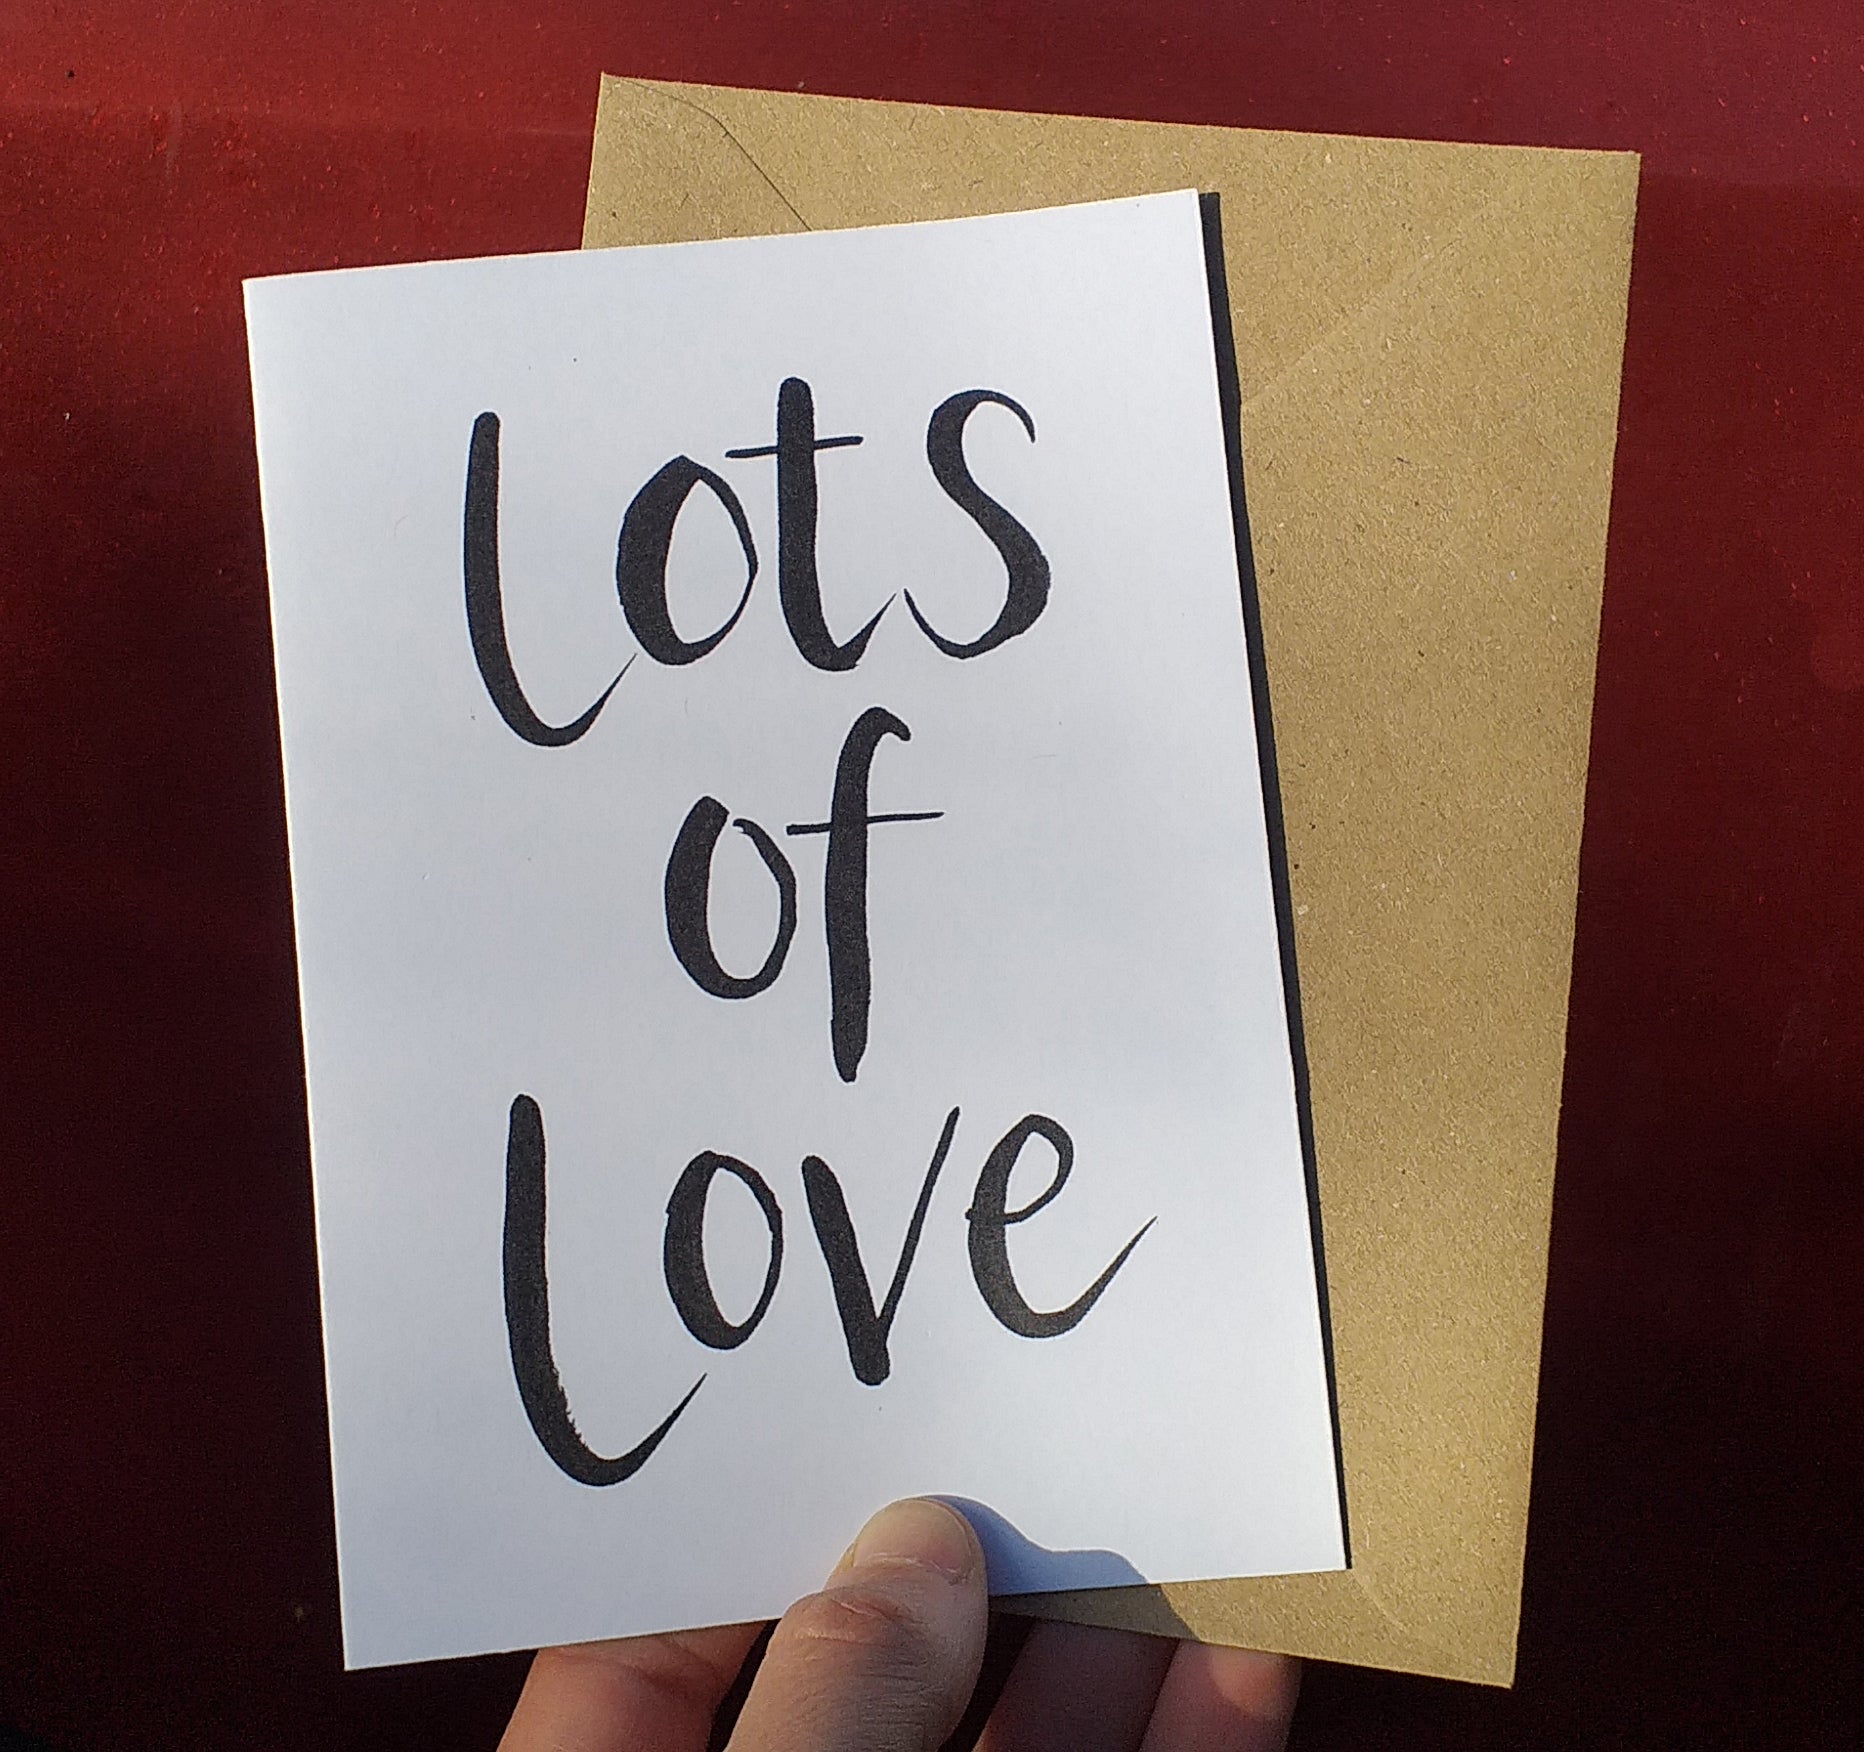 Lots
of
Love